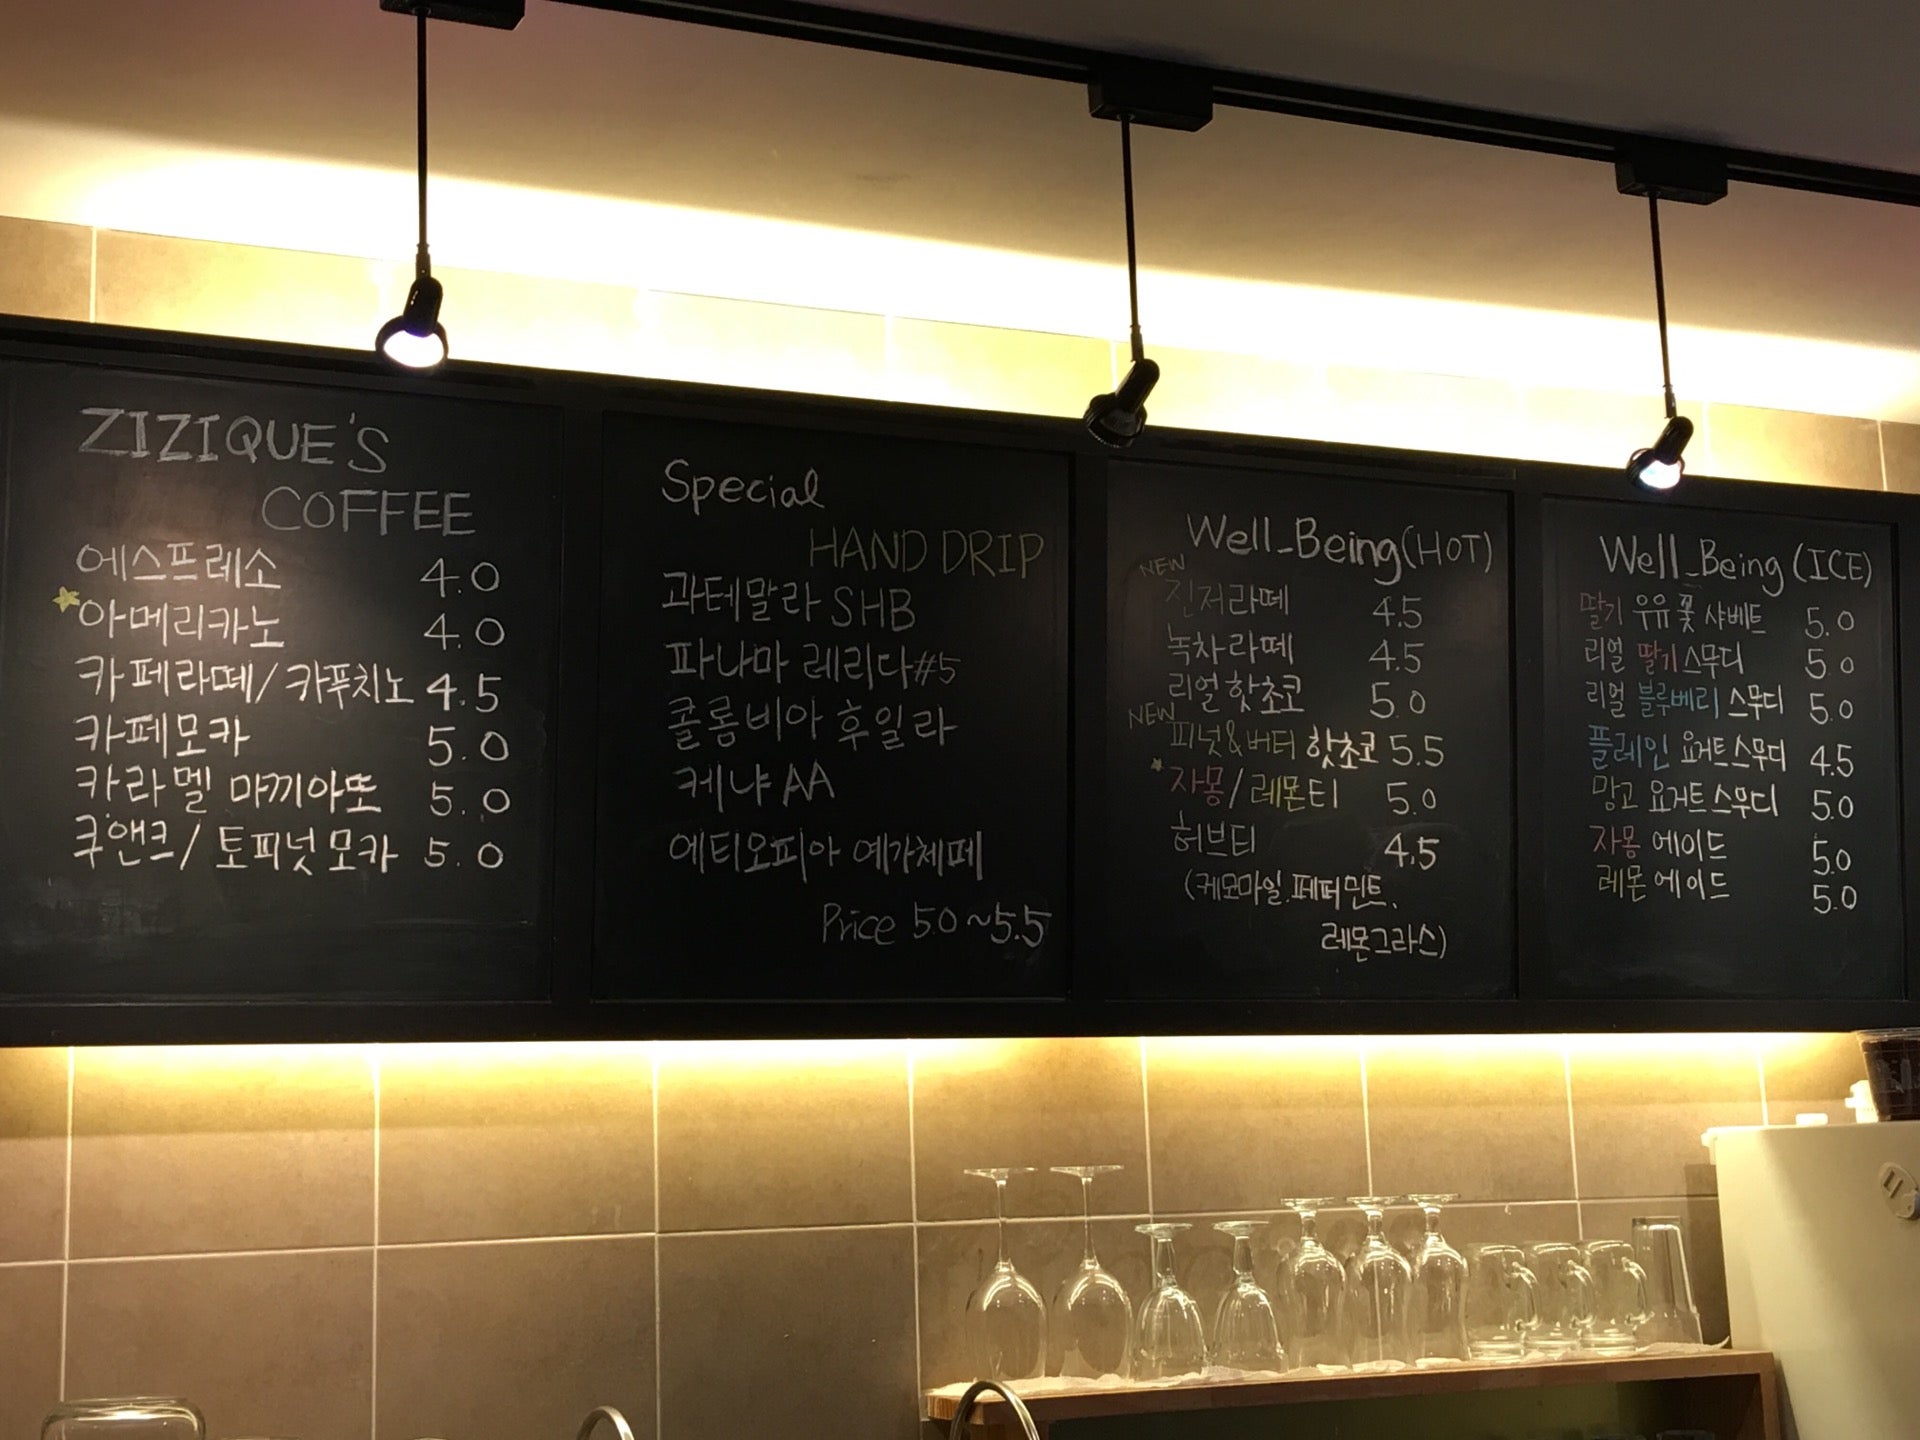 ZIZIQUE'S
COFFEE
에스프레소 4.0
아메리카노 4.0
카페라떼/카푸치노 4.5
카페모카 5.0
카라멜 마끼아또 5.0
쿠앤크/토피넛모카 5.0
Special
HAND DRIP
과테말라 SHB
파나마 레리다#5
콜롬비아 후일라
케냐 AA
에티오피아 예가체페
Price 5.0~5.5
Well_Being(HOT)
NEW
진저라떼 4.5
녹차라떼 4.5
리얼핫초코 5.0
NEW
피넛&버터 핫초코 5.5
자몽/레몬티 5.0
허브티 4.5
(케모마일.페퍼민트.
레몬그라스)
Well_Being (ICE)
딸기 우유 꽃 샤베트 5.0
리얼 딸기스무디 5.0
리얼 블루베리 스무디 5.0
플레인 요거트스무디 4.5
망고 요거트스무디 5.0
자몽 에이드 5.0
레몬에이드 5.0